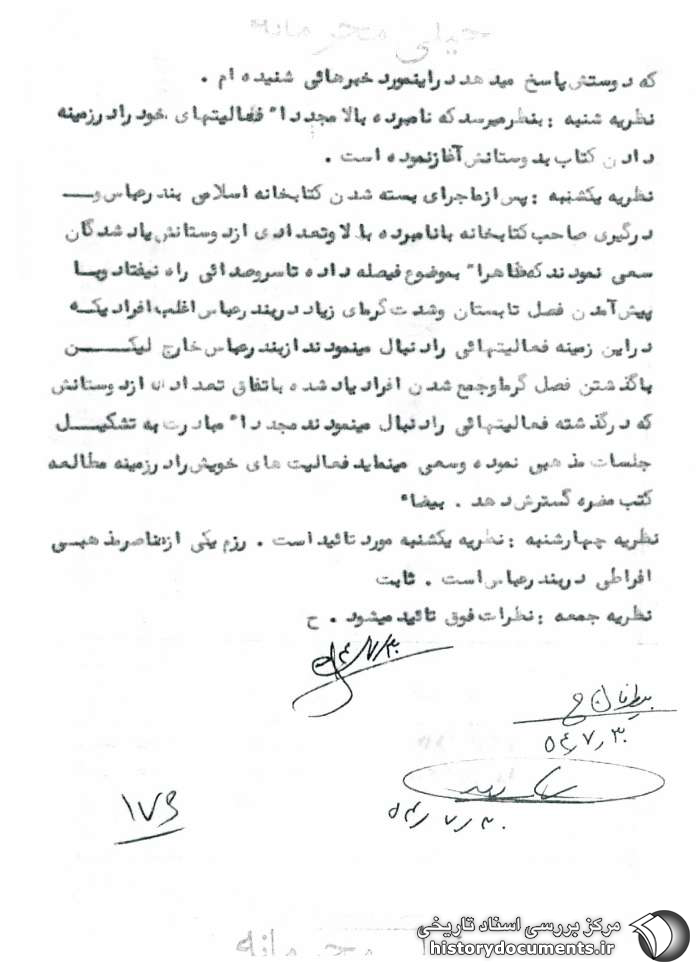 خیلی محرمانه
که دوستش پاسخ میدهد دراینمورد خبرهائی شنیده ام .
نظریه شنبه : بنظرمیرسدکه نامبرده بالا مجددا" فعالیتهای خود رادرزمینه
دادن کتاب بدوستانش آغازنموده است .
نظریه یکشنبه : پس ازماجرای بسته شدن کتابخانه اسلامی بندرعباس و
درگیری صاحب کتابخانه بانامبرده بالا وتعدادی ازدوستانش یادشدگان
سعی نمودندکه ظاهرا" بموضوع فیصله داده تاسروصدائی راه نیفتادوبا
پیش آمدن فصل تابستان وشدت گرمای زیاددربندرعباس اغلب افرادیکه
دراین زمینه فعالیتهائی رادنبال مینمودندازبندرعباس خارج لیکن
باگذشتن فصل گرماوجمع شدن افرادیادشده باتفاق تعدادی ازدوستانش
که درگذشته فعالیتهائی رادنبال مینمودندمجددا" مبادرت به تشکیل
جلسات مذهبی نموده وسعی مینماید فعالیت های خویش رادرزمینه مطالعه
کتب مضره گسترش دهد . بیضاء
نظریه چهارشنبه : نظریه یکشنبه موردتائیداست . رزم یکی ازعناصرمذهبی
افراطی دربندرعباس است . ثابت
نظریه جمعه : نظرات فوق تائیدمیشود . ح
۵۴/۷/۳۰
۵۴٫۷٫۳۰
۵۴٫۷٫۳۰
۱۷۶
مرکز بررسی اسناد تاریخی
historydocuments.ir
محرمانه